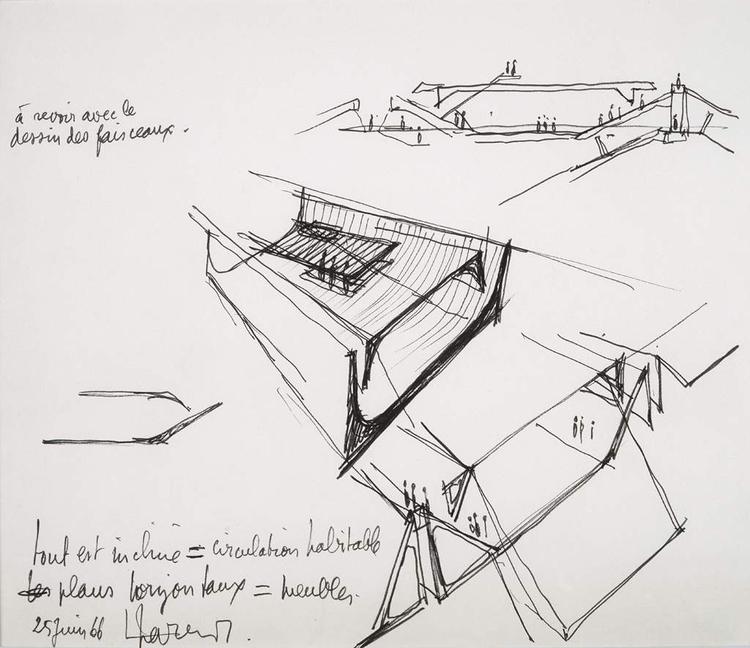 à revoir avec le
dessin des faisceaux.
tout est incliné = circulation habitable
les plans horizontaux = meubles.
25 juin 66 Parent.